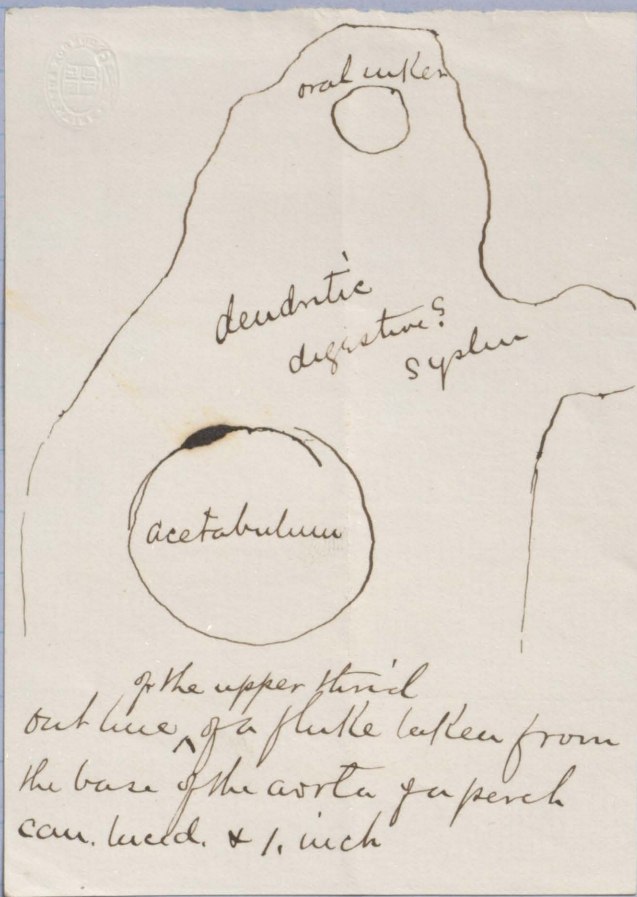 oral sucker
dendritic
digestive?
system
acetabulum
of the upper third
out line ^ of a fluke taken from
the base of the aorta of a perch
cam. lucid. & 1. inch